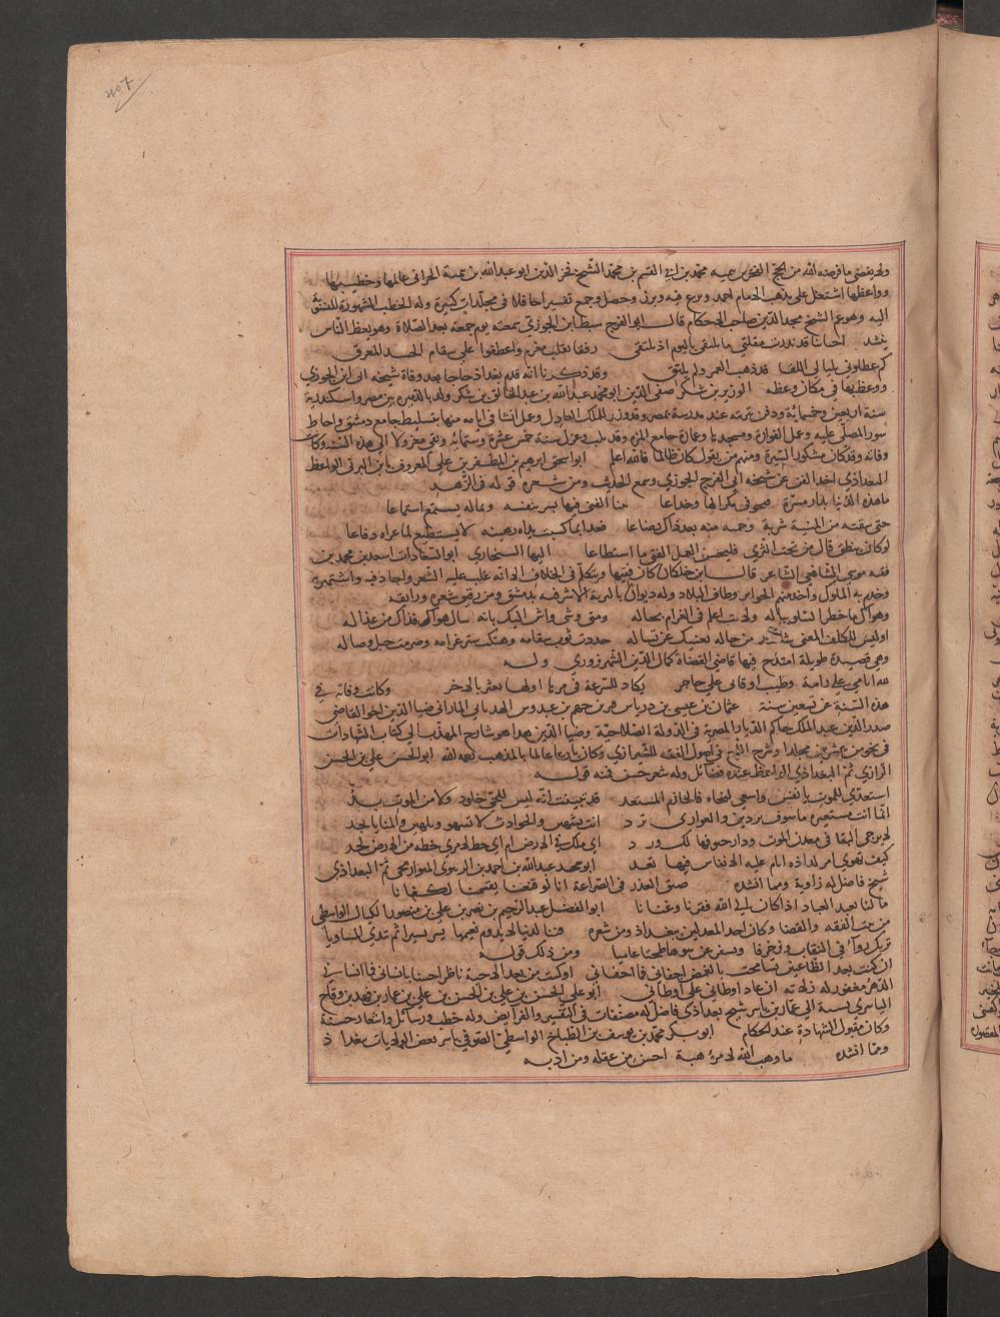 ولم يقضي ما فرضه الله من الحج الفخر بن تيمية محمد بن ابي القسم بن محمد الشيخ فخر الدين ابو عبد الله بن تيمية الحراني عالمها وخطيبها
وواعظها اشتغل على مذهب الامام احمد وبرع فيه وبرز وحصل وجمع تفسيرا حافلا في مجلدات كثيرة وله الخطب المشهورة المنسوبة
اليه وهو عم الشيخ مجد الدين صاحب الاحكام قال ابو الفرج سبط ابن الجوزي سمعته يوم جمعة بعد الصلاة وهو يعظ الناس
ينشد احبابنا قد ندرت مقلتي ما تلتقي بالنوم اذ نلتقي رفقا بقلب مغرم واعطفوا على سقام الجسد المحرق
كم تمطلوني بليالي اللقا قد ذهب العمر ولم نلتقي وقد ذكرنا انه قدم بغداد حاجا بعد وفاة شيخه ابي ابن الجوزي
ووعظ بها في مكان وعظه الوزير بن شكر صفي الدين ابو محمد عبد الله بن عبد الخالق بن شكر ولد بالدميرة بين مصر واسكندرية
سنة اربعين وخمسمائة ودفن بتربته عند مدرسته بمصر وقد وزر للملك العادل وعمل اشيا في ايامه منها تبليط جامع دمشق واحاط
سور المصلى عليه وعمل الفوارة ومسجدها وعمارة جامع المزه وقد نكب وعزل سنة خمس عشرة وستمائة وبقي معزولا الى هذه السنة وكانت
وفاته وقد كان مشكور السيرة ومنهم من يقول كان ظالما فالله اعلم ابو اسحق ابرهيم بن المظفر بن علي المعروف بابن البرني الواعظ
البغداذي اخذ الفن عن شيخه ابي الفرج الجوزي وسمع الحديث ومن شعره قوله في الزهد
ما هذه الدنيا بدار مسرة فتخوفي مكرا لها وخداعا بينا الفتى فيها يسر بنفسه وبماله يستمتع استمتاعا
حتى سقته من المنية شربة وحمته منه بعد ذاك رضاعا فغدا بما كسبت يداه رهينة لا يستطيع لما عراه دفاعا
لو كان ينطق قال من تحت الثرى فليحسن العمل الفتى ما استطاعا البها السنجاري ابو السعادات اسعد بن محمد بن
موسى الفقيه الشافعي الشاعر قال ابن خلكان كان فقيها وتكلم في الخلاف الا انه غلب عليه الشعر واجاد فيه واشتهر به
وخدم به الملوك واخذ منهم الجوايز وطاف البلاد وله ديوان بالتربة الاشرفية بدمشق ومن رقيق شعره ورائقه
وهواك ما خطر السلو بباله ولانت اعلم في الغرام بحاله ومتى وشى واش اليك بانه سال هواك فذاك من عذاله
اوليس للكلف المعنى شاهد من حاله يغنيك عن تساله جددت ثوب سقامه وهتكت ستر غرامه وصرمت حبل وصاله
وهي قصيدة طويلة امتدح فيها قاضي القضاة كمال الدين الشهرزوري وله
لله ايامي على رامة وطيب اوقاتي على حاجر يكاد للسرعة في مرها اولها يعثر بالاخر وكانت وفاته في
هذه السنة عن تسعين سنة عثمان بن عيسى بن درباس بن جهم بن عبدوس الهدباني الماراني ضيا الدين اخو القاضي
صدر الدين عبد الملك حاكم الديار المصرية في الدولة الصلاحية وضيا الدين هذا هو شارح المهذب الى كتاب الشهادات
في نحو من عشرين مجلدا وشرح اللمع في اصول الفقه للشيرازي وكان بارعا عالما بالمذهب رحمه الله ابو الحسن علي بن الحسن
الرازي ثم البغداذي الواعظ عنده فضائل وله شعر حسن فمنه قوله
استعدي للموت يا نفس واسعي لنجاة فالحازم المستعد قد تبينت انه ليس للحي خلود ولا من الموت بد
انما انت مستعيرة ما سوف تردين والعواري ترد انت تسهين والحوادث لا تسهو وتلهين والمنايا تجد
لا نرجى البقا في معدن الموت ودار حتوفها لك ورد اي ملك في الارض ام اي حظ لامرئ حظه من الارض لحد
كيف يهوى امرؤ لذاذة ايام عليه الانفاس فيها تعد ابو محمد عبد الله بن احمد بن الرسوي البوازيجي ثم البغداذي
شيخ فاضل له رواية ومما انشده ضيق العذر في الضراعة انا لو قنعنا بقسمنا لكفانا
ما لنا نعبد العباد اذا كان الى الله فقرنا وغنانا ابو الفضل عبد الرحيم بن نصر بن علي بن منصور الكيال الواسطي
من بيت الفقه والقضا وكان احد المعدلين ببغداد ومن شعره فتبا لدنيا لا يدوم نعيمها تسر يسيرا ثم تبدي المساويا
تريك رواء في النقاب وزخرفا وتسفر عن شوهاء طحياء عاميا ومن ذلك قوله
ان كنت بعد الظاعنين تسامحت بالغمض اجفاني فما اجفاني اوكنت من بعد الاحبة ناظرا حسنا بانساني فما انساني
الدهر مغفور له زلاته ان عاد اوطاني على اوطاني ابو علي الحسن بن علي بن الحسن بن علي بن عمار بن فهد بن وقاح
الياسري نسبة الى عمار بن ياسر شيخ بغداذي فاضل له مصنفات في التفسير والفرايض وله خطب ورسائل واشعار حسنة
وكان مقبول الشهادة عند الحكام ابو بكر محمد بن يوسف بن الطباخ الواسطي الصوفي باشر بعض الولايات ببغداذ
ومما انشده ما وهب الله لامرئ هبة احسن من عقله ومن ادبه